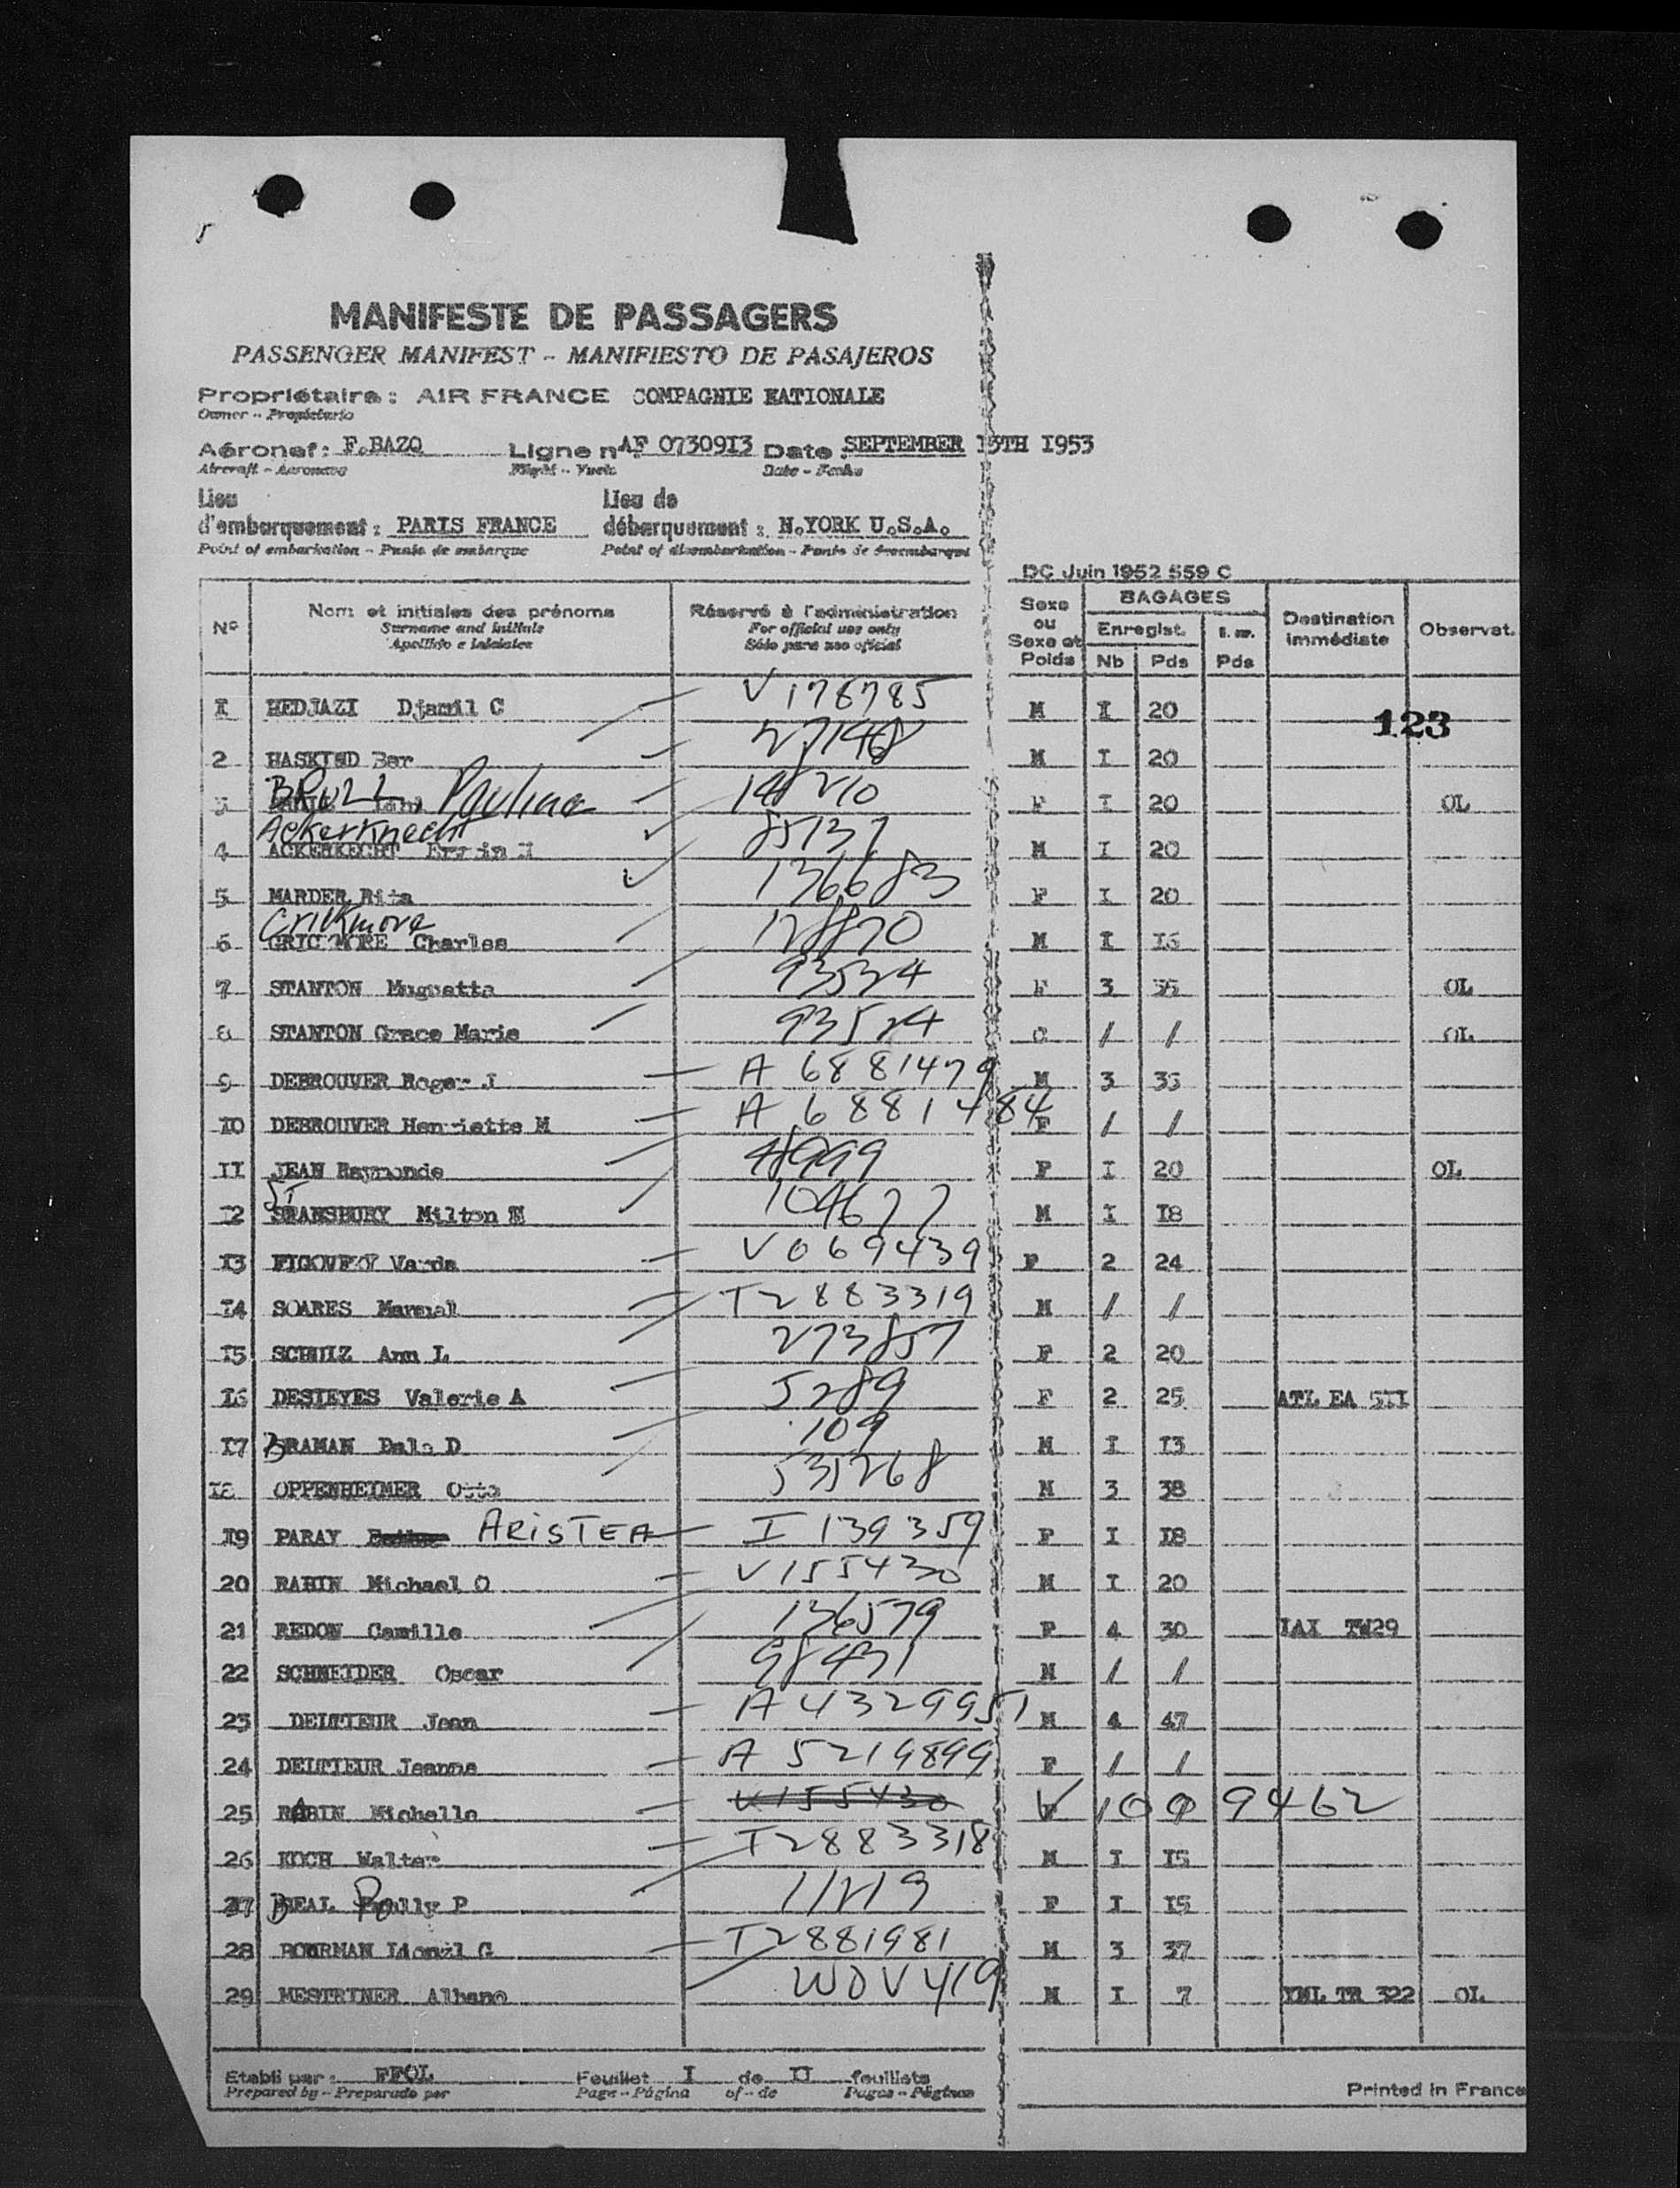 MANIFESTE DE PASSAGERS
PASSENGER MANIFEST - MANIFIESTO DE PASAJEROS
Propriétaire : AIR FRANCE COMPAGNIE NATIONALE
Owner - Propietario
Aéronef : F.BAZQ Ligne n° AF 0730913 Date : SEPTEMBER 13TH 1953
Aircraft - Aeronave Flight - Vuelo Date - Fecha
Lieu Lieu de
d'embarquement : PARIS FRANCE débarquement : N.YORK U.S.A.
Point of embarkation - Punto de embarque Point of disembarkation - Punto de desembarque
DC Juin 1952 559 C
N° Nom et initiales des prénoms Réservé à l'administration Sexe ou Sexe et Poids BAGAGES Destination immédiate Observat.
Surname and initials For official use only Enregist.
Apellido e iniciales Sólo para uso oficial Nb Pds Pds
1 HEDJAZI Djamil C V 176785 M I 20
123
2 HASKIND Ber 27148 M I 20
3 BRULL Paulina 148210 F I 20 OL
Ackerknecht
4 ACKERKECHT Erwin H 85137 M I 20
5 MARDER Rita 136683 F I 20
Crickmore
6 Charles 128870 M I
7 STANTON Muguette 93524 F 3 35 OL
8 STANTON Grace Marie 93524 C / / OL
9 DEBROUVER Roger J A 6881479 M 3 35
10 DEBROUVER Henriette M A 6881484 F / /
II JEAN Raymonde 4999 F I 20 OL
ST
I2 STANSBURY Milton 104677 M I I8
I3 Varda V 069439 F 2 24
I4 SOARES Manual T2883319 M / /
I5 SCHULZ Ann L 273857 F 2 20
I6 DESIEYES Valerie A 5289 F 2 25 ATL EA 5II
I7 BRAMAN Dale D 109 M I I3
I8 OPPENHEIMER Otto 535268 M 3 38
I9 PARAY ARISTEA I 139359 F I I8
20 RABIN Michael O V 155430 M I 20
21 REDON Camille 136579 F 4 30 IAX TW29
22 SCHNEIDER Oscar 98431 M / /
23 DELTIEUR Jean A 4329951 M 4 47
24 DELTIEUR Jeanne A 5219899 F / /
25 RABIN Michelle V155430 V 1009462
26 KOCH Walter T2883318 M I I5
27 BEAL Polly P 11219 F I I5
28 BOURMAN Lionel G T2881981 M 3 37
29 MESTRINER Albano WDV419 M I 7 YML TR 322 OL
Etabli par : FFOL Feuillet I de II feuillets
Prepared by - Preparado por Page - Página of - de Pages - Páginas
Printed in France